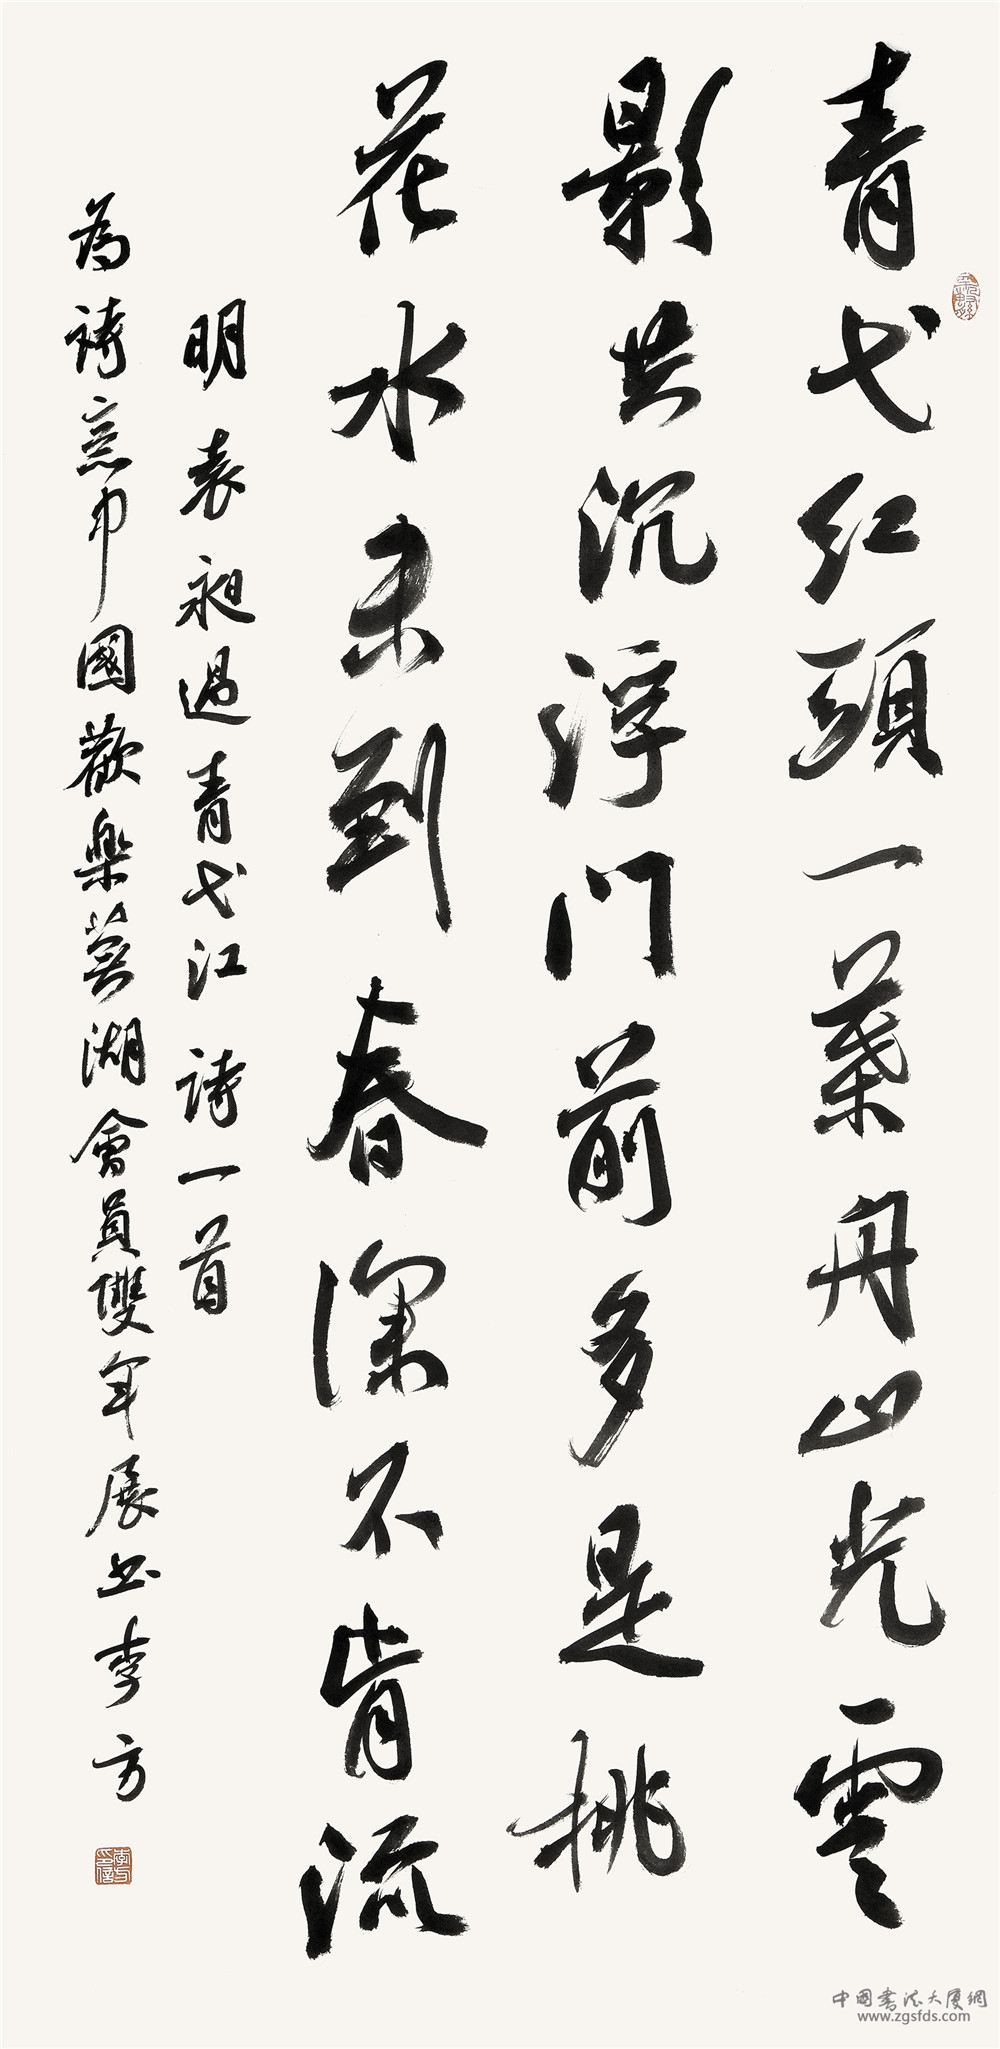 青弋红頭一葉舟山光雲
影共沉浮门前多是桃
花水未到春深不肯流
明袁昶過青弋江詩一首
為詩意中國歡樂蕪湖會員雙年展書李方
中國書法大厦網
www.zgsfds.com